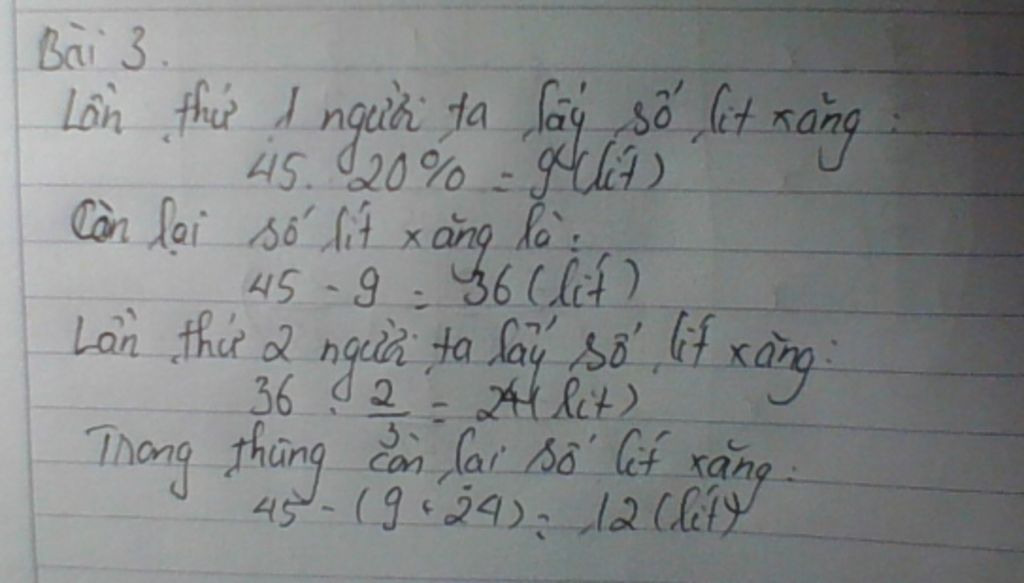 Bài 3.
Lần thứ 1 người ta lấy số lít xăng:
45. 20% = 9 (lít)
Còn lại số lít xăng là:
45 - 9 = 36 (lít)
Lần thứ 2 người ta lấy số lít xăng:
36 . 2/3 = 24 (lít)
Trong thùng còn lại số lít xăng:
45 - (9 + 24) = 12 (lít)